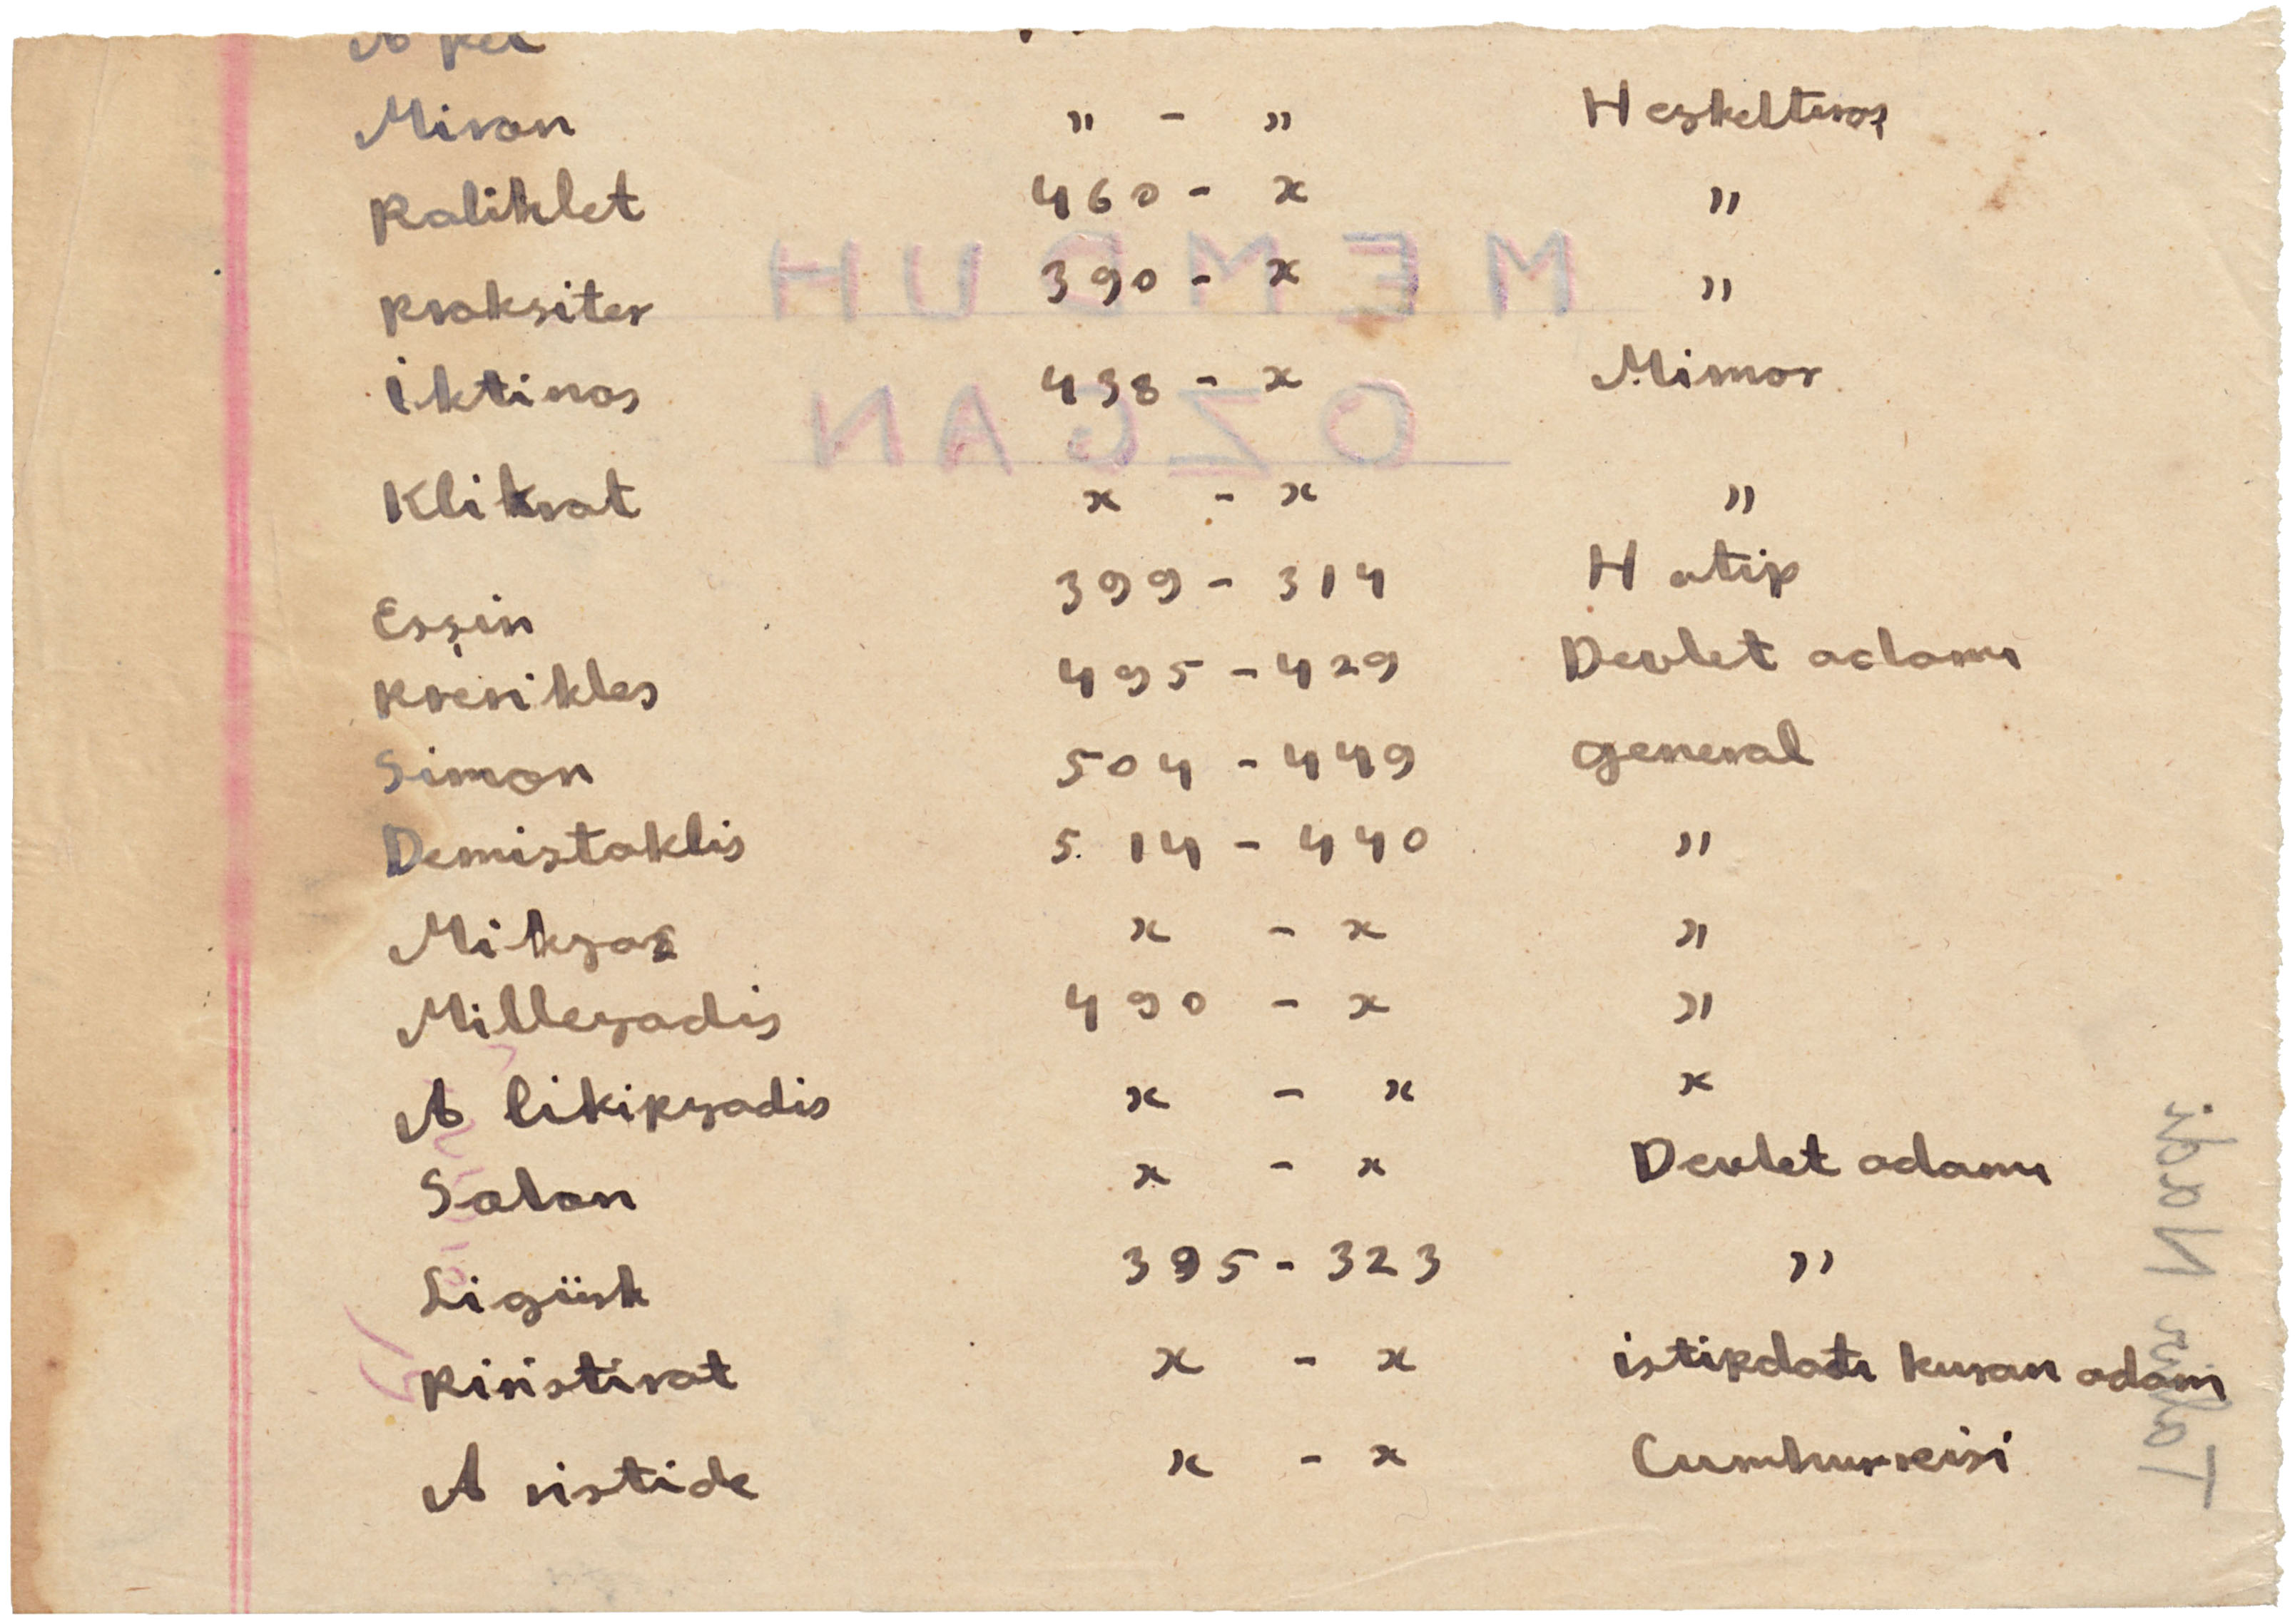 Miron " - " Heykeltıraş
Poliklet 460 - x "
Praksiter 390 - x "
İktinos 438 - x Mimar
Klikrat x - x "
Essin 399 - 314 Hatip
Prerikles 495 - 429 Devlet adamı
Simon 504 - 449 general
Demistoklis 514 - 440 "
Mikyas x - x "
Milleyadis 490 - x "
Alikipyadis x - x x
Solon x - x Devlet adamı
Ligürk 395 - 323 "
Piristirat x - x istipdadı kuran adam
Aristide x - x Cumhurreisi
MEMDUH
OZGAN
Nadi